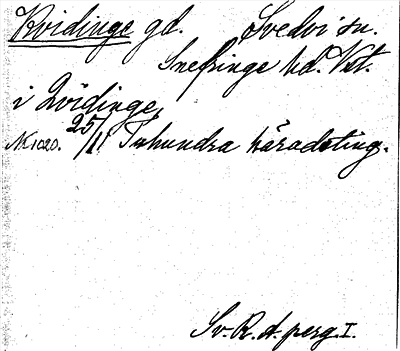 Kvidinge gd. Svedvi sn.
Snefringe hd. Vst.
i Qvidinge
Nk 1020. 25/11 Tuhundra häradsting.
Sv. R. A. perg. I.